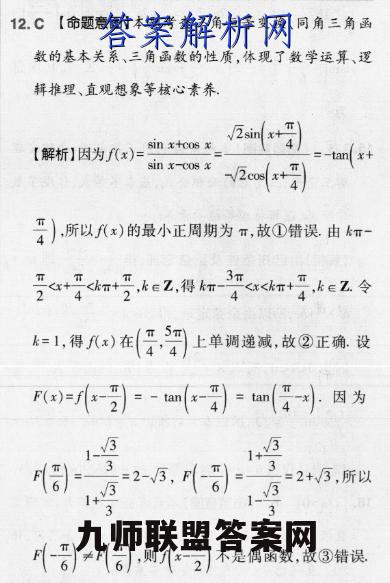 12. C 【命题意图】本题考查三角恒等变换、同角三角函
答案解析网
数的基本关系、三角函数的性质,体现了数学运算、逻
辑推理、直观想象等核心素养.
【解析】因为f(x)=\frac{sin x+cos x}{sin x-cos x}=\frac{√2sin(x+\frac{π}{4})}{-√2cos(x+\frac{π}{4})}=-tan(x+
\frac{π}{4}),所以f(x)的最小正周期为π,故①错误.由kπ-
\frac{π}{2}<x+\frac{π}{4}<kπ+\frac{π}{2},k∈Z,得kπ-\frac{3π}{4}<x<kπ+\frac{π}{4},k∈Z.令
k=1,得f(x)在(\frac{π}{4},\frac{5π}{4})上单调递减,故②正确.设
F(x)=f(x-\frac{π}{2})=-tan(x-\frac{π}{4})=tan(\frac{π}{4}-x).因为
F(\frac{π}{6})=\frac{1-\frac{√3}{3}}{1+\frac{√3}{3}}=2-√3,F(-\frac{π}{6})=\frac{1+\frac{√3}{3}}{1-\frac{√3}{3}}=2+√3,所以
九师联盟答案网
F(-\frac{π}{6})≠F(\frac{π}{6}),则f(x-\frac{π}{2})不是偶函数,故③错误.